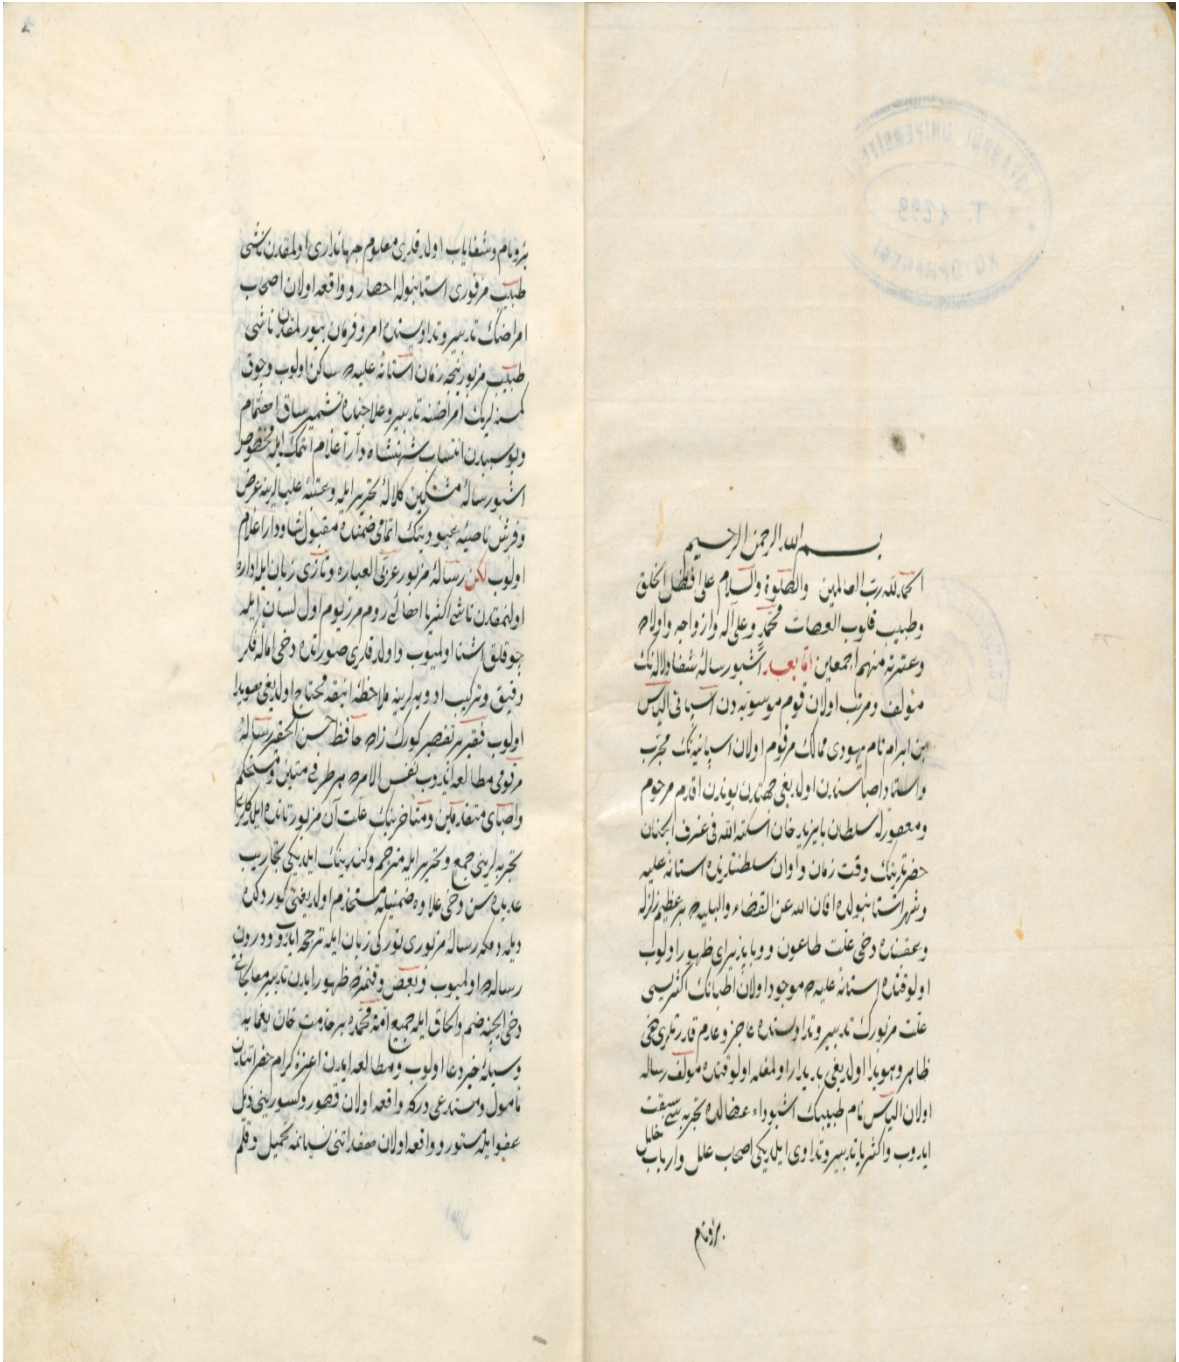 بسم الله الرحمن الرحيم
الحمد لله رب العالمين والصلوة والسلام على افضل الخلق
وطبيب قلوب العصات محمد وعلى آله وازواجه واولاده
وعترته منهم اجمعين اما بعد اشبو رسالۀ شفا دلالنك
مؤلف ومرتب اولان قوم موسويه دن اسپانى الياس
بن ابراهام نام يهودى ممالك مرقوم اولان اسپانيه نك مجرب
واستاد اطباسندن اولديغى جهتدن بوندن اقدم مرحوم
ومغفور له سلطان بايزيد خان اسكنه الله فى غرف الجنان
حضرتلرينك وقت زمان واوان سلطنتلرنده استانۀ عليه
وشهر استانبولده افان الله عن القضاء والبليه بر عظيم زلزله
وعقبنده دخى علت طاعون ووبا پذيراى ظهور اولوب
اولوقتده استانۀ عليه ده موجود اولان اطبانك اكثريسى
علت مزبورك تدبير وتداوسنده عاجز وعادم قدرتلرى دخى
ظاهر وهويدا اولديغى پديدار اولمغله اولوقتده مؤلف رساله
اولان الياس نام طبيبك اشبو داء عضالده تجربه سى سبقت
ايدوب واكثريا تدبير وتداوى ايلديكى اصحاب علل وارباب
برؤ تام
برؤ تام وشفاياب اولدقلرى معلوم جهاندارى اولمقدن ناشى
طبيب مزبورى استانبوله احضار وواقعه اولان اصحاب
امراضك تدبير وتداوسنده امر وفرمان بيورلمقدن ناشى
طبيب مزبور نيجه زمان استانۀ عليه ده ساكن اولوب وچوق
كمسنه لرك امراضنه تدبير وعلاجنده تشمير ساق اهتمام
وبو سببدن انتساب شهنشاه دارا غلام ايتمك ايله مخصوص
اشبو رسالۀ مشكين كلاله تحرير ايله وعتبۀ عليالرينه عرض
وفرش ناصيۀ عبوديتك اتمامى ضمننده مقبول شاه دارا غلام
اولوب لكن رسالۀ مزبور عربى العباره وتازى زبان ايله اداره
اولنمقدن ناشى اكثريا اهالئ روم مرزبوم اول لسان ايله
چوقلق اشنا اولميوب واولدقلرى صورتده دخى اماله فكر
دقيق وتركيب ادويه لرينه ملاحظۀ انيقه محتاج اولديغى هويدا
اولوب فقير پر تقصير كورك زاده حافظ حسن الحقير رسالۀ
مرقومى مطالعه ايدوب نفس الامرده هر طرفى متين ومستحكم
واطباى متقدمين ومتأخرينك علت آن مزبور
تجربه لرينى جمع وتحرير ايله مترجم وكندينك ايلديكى تجاريب
عديده سن دخى علاوه ضمنيله مستخدم اولديغنى كوردكده
ديله دمكه رسالۀ مزبورى توركى زبان ايله ترجمه ودرون
رساله ده اولميوب وبعض وقتمزده ظهور ايدن تدبير معالجاتى
دخى الجنه ضم والحاق ايله جميع امة محمده بر خدمت
وسيلۀ خير دعا اولوب ومطالعه ايدن اعزۀ كرام حضراتندن
مأمول ومستدعى دركه واقعه اولان قصور وكسورينى ذيل
عفو ايله مستور وواقعه اولان نسيانمه تحميل وقلم